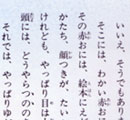 いいえ、そうでもあり
そこには、わかい赤お
その赤おには、絵本にえ
かたち、顔つきが、たい
けれども、やっぱり目は
頭には、どうやらつのの
それでは、やっぱりゆ